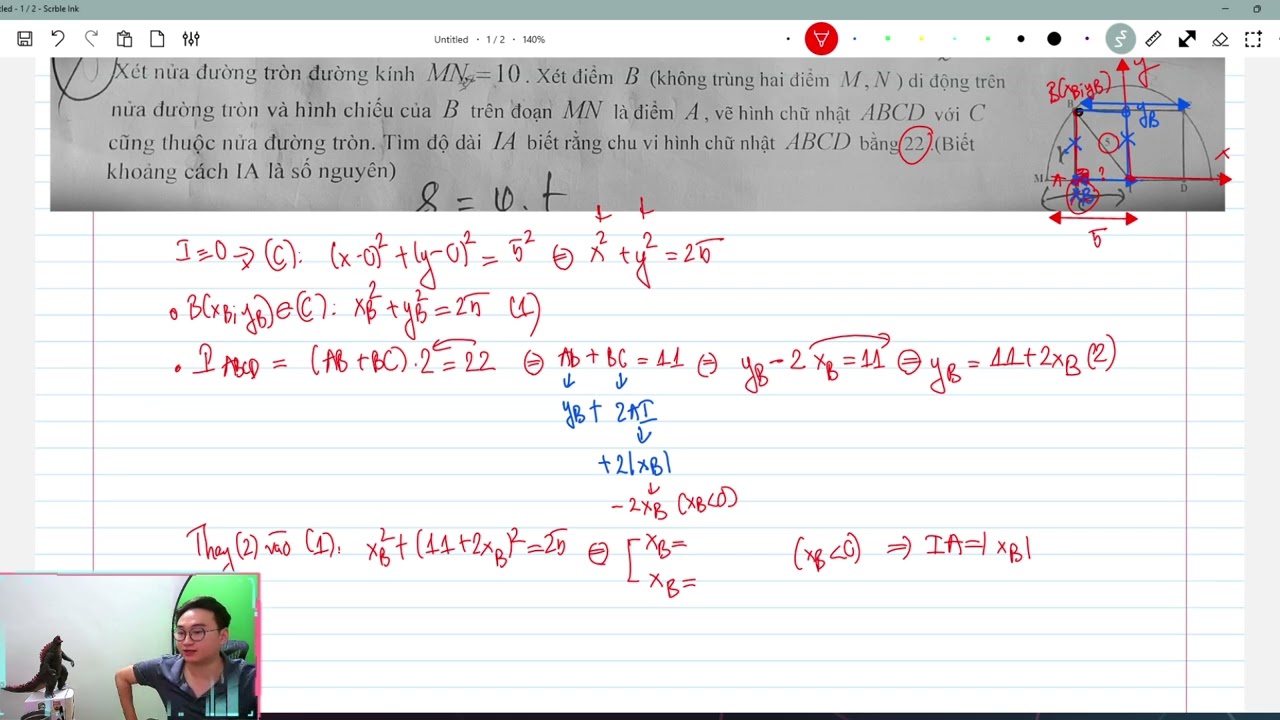 tled - 1 / 2 - Scrble Ink
Untitled • 1 / 2 • 140%
Xét nửa đường tròn đường kính MN = 10. Xét điểm B (không trùng hai điểm M, N) di động trên
nửa đường tròn và hình chiếu của B trên đoạn MN là điểm A, vẽ hình chữ nhật ABCD với C
cũng thuộc nửa đường tròn. Tìm độ dài IA biết rằng chu vi hình chữ nhật ABCD bằng 22.(Biết
khoảng cách IA là số nguyên)
B(xB;yB)
y
B
yB
5
x
M
A
?
D
5
S = v.t
I≡O ⇒ (C): (x-0)² + (y-0)² = 5² ⇔ x² + y² = 25
• B(xB;yB)∈(C): xB² + yB² = 25 (1)
• P ABCD = (AB + BC).2 = 22 ⇔ AB + BC = 11 ⇔ yB - 2xB = 11 ⇔ yB = 11 + 2xB (2)
yB + 2AI
+2|xB|
-2xB (xB<0)
Thay (2) vào (1): xB² + (11 + 2xB)² = 25 ⇔ [ xB =
xB =
(xB<0) ⇒ IA = |xB|